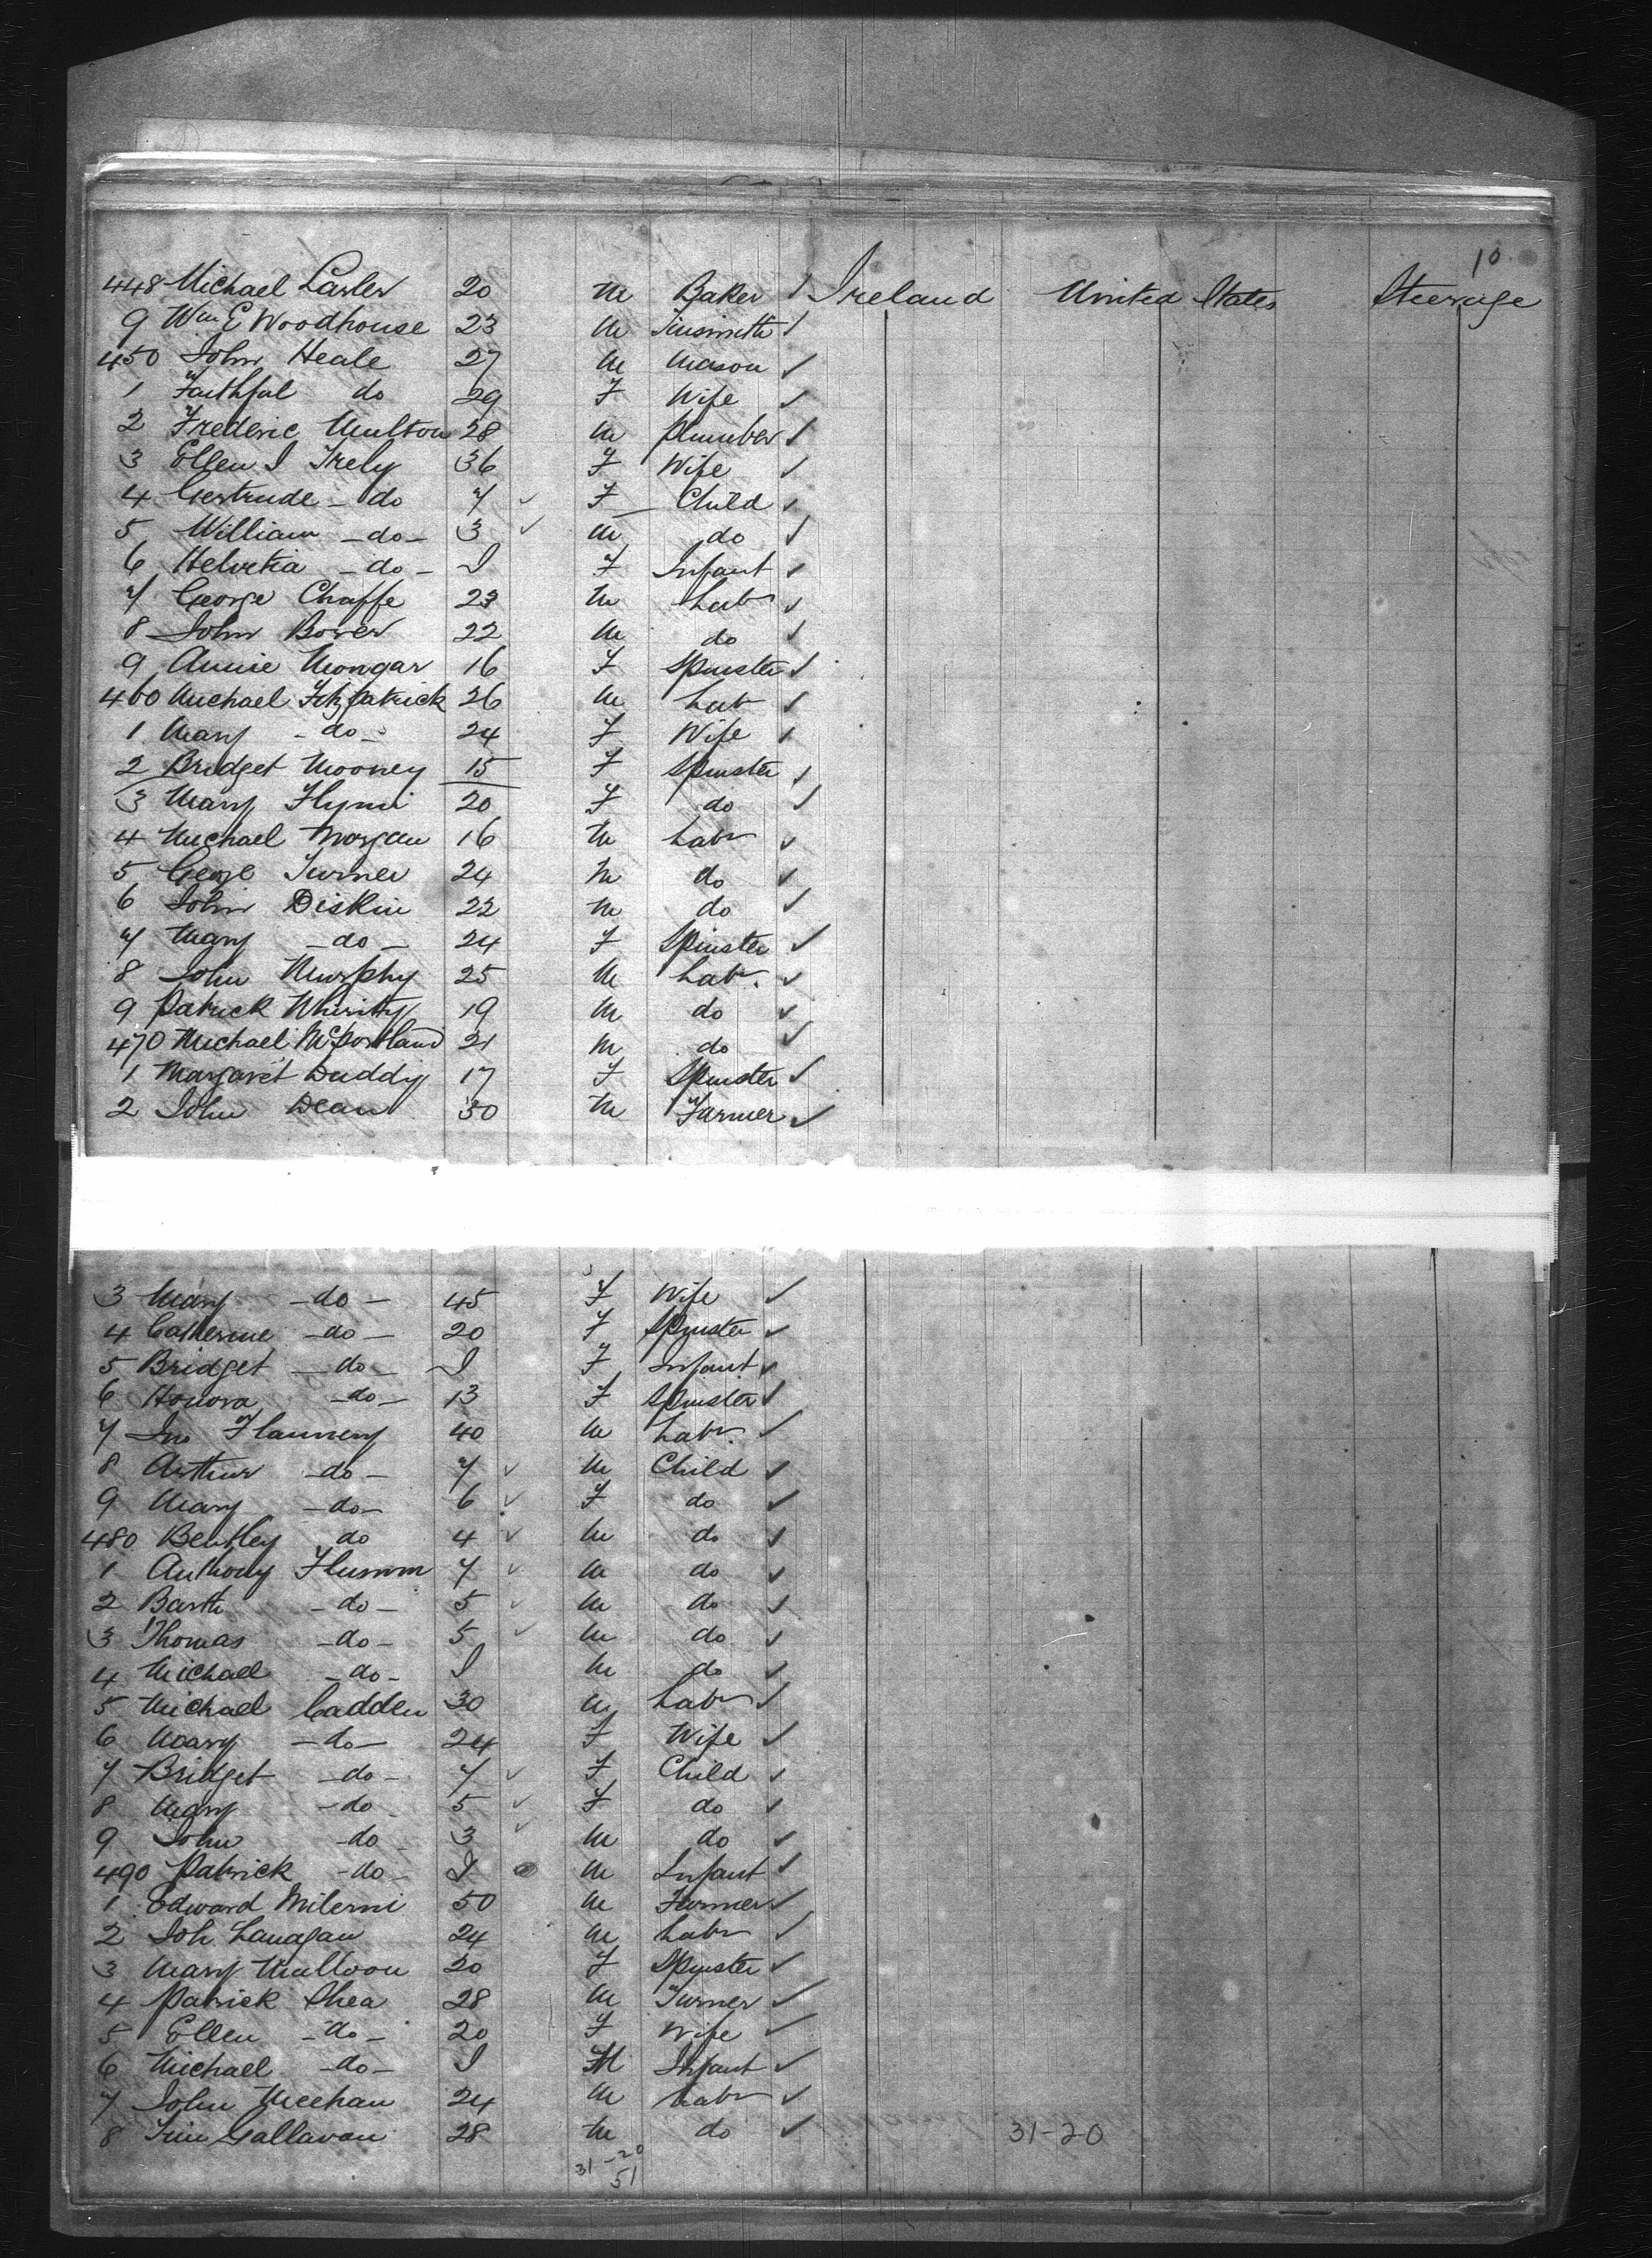 10
448 Michael Lawler 20 M Baker Ireland United States Steerage
9 Wm E Woodhouse 23 M Tinsmith
450 John Heale 27 M Mason
1 Faithful do 29 F Wife
2 Frederic Multon 28 M Plumber
3 Ellen I Trely 36 F Wife
4 Gertrude - do 7 F - Child
5 William - do - 3 M do
6 Helvetia - do - I F Infant
7 George Chaffe 23 M Labr
8 John Bower 22 M do
9 Annie Mongar 16 F Spinster
460 Michael Fitzpatrick 26 M Lab
1 Mary - do - 24 F Wife
2 Bridget Mooney 15 F Spinster
3 Mary Flynn 20 F do
4 Michael Morgan 16 M Labr
5 George Turner 24 M do
6 John Diskin 22 M do
7 Mary - do - 24 F Spinster
8 John Murphy 25 M Labr.
9 Patrick Whirity 19 M do
470 Michael McPortland 21 M do
1 Margaret Duddy 17 F Spinster
2 John Dean 50 M Farmer
3 Mary - do - 45 F Wife
4 Catherine - do - 20 F Spinster
5 Bridget - do - I F Infant
6 Honora - do - 13 F Spinster
7 Jno Flannery 40 M Labr
8 Arthur - do - 7 M Child
9 Mary - do - 6 F do
480 Bentley do 4 M do
1 Anthony Flumm 7 M do
2 Barth - do - 5 M do
3 Thomas - do - 5 M do
4 Michael - do - I M do
5 Michael Cadden 30 M Labr
6 Mary - do - 24 F Wife
7 Bridget - do - 7 F Child
8 Mary - do 5 F do
9 John - do 3 M do
490 Patrick - do - I M Infant
1 Edward Milerni 50 M Farmer
2 Joh Lanagan 24 M Labr
3 Mary Mulloon 20 F Spinster
4 Patrick Shea 28 M Turner
5 Ellen - do - 20 F Wife
6 Michael - do - I M Infant
7 John Meehan 24 M Labr
8 Tim Gallavan 28 M do 31-20
31-20
51